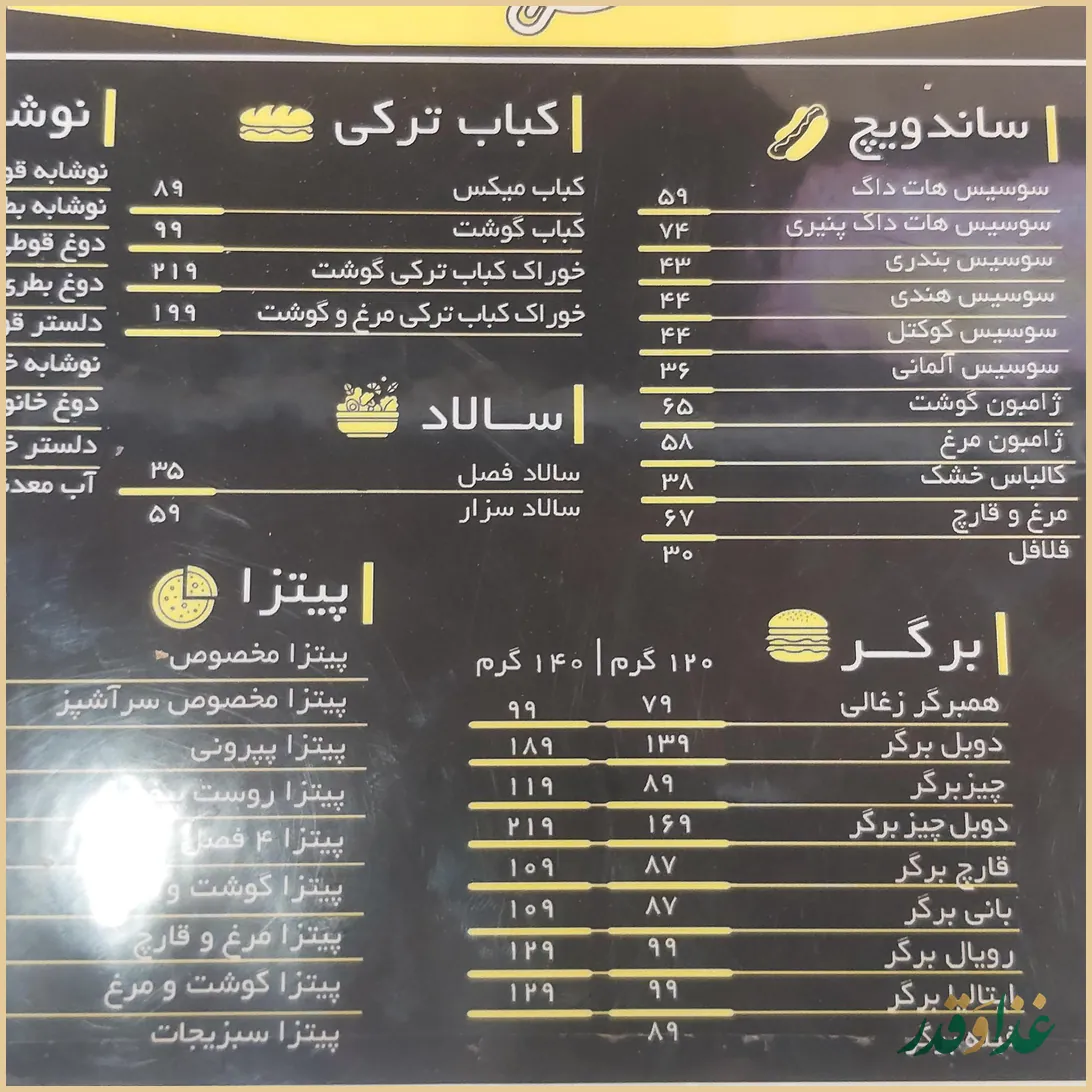 ساندویچ
سوسیس هات داگ ۵۹
سوسیس هات داگ پنیری ۷۴
سوسیس بندری ۴۳
سوسیس هندی ۴۴
سوسیس کوکتل ۴۴
سوسیس آلمانی ۳۶
ژامبون گوشت ۶۵
ژامبون مرغ ۵۸
کالباس خشک ۳۸
مرغ و قارچ ۶۷
فلافل ۳۰
برگر
۱۲۰ گرم | ۱۴۰ گرم
همبرگر زغالی ۷۹ ۹۹
دوبل برگر ۱۳۹ ۱۸۹
چیزبرگر ۸۹ ۱۱۹
دوبل چیز برگر ۱۶۹ ۲۱۹
قارچ برگر ۸۷ ۱۰۹
بانی برگر ۸۷ ۱۰۹
رویال برگر ۹۹ ۱۲۹
ایتالیا برگر ۹۹ ۱۲۹
۸۹
کباب ترکی
کباب میکس ۸۹
کباب گوشت ۹۹
خوراک کباب ترکی گوشت ۲۱۹
خوراک کباب ترکی مرغ و گوشت ۱۹۹
سالاد
سالاد فصل ۳۵
سالاد سزار ۵۹
پیتزا
پیتزا مخصوص
پیتزا مخصوص سرآشپز
پیتزا پپرونی
پیتزا روست
پیتزا ۴ فصل
پیتزا گوشت و
پیتزا مرغ و قارچ
پیتزا گوشت و مرغ
پیتزا سبزیجات
نوش
نوشابه قو
نوشابه بط
دوغ قوطی
دوغ بطری
دلستر قو
نوشابه خ
دوغ خانو
دلستر خ
آب معدن
غذا و قدر